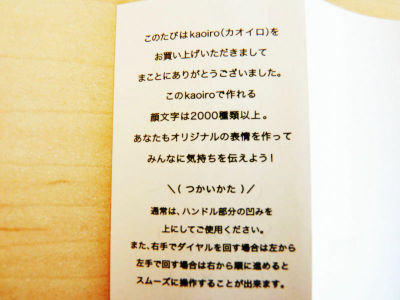 このたびはkaoiro(カオイロ)を
お買い上げいただきまして
まことにありがとうございました。
このkaoiroで作れる
顔文字は2000種類以上。
あなたもオリジナルの表情を作って
みんなに気持ちを伝えよう!
＼( つかいかた )／
通常は、ハンドル部分の凹みを
上にしてご使用ください。
また、右手でダイヤルを回す場合は左から
左手で回す場合は右から順に進めると
スムーズに操作することが出来ます。